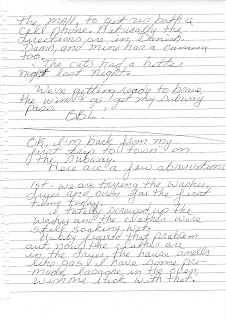 the mall, to get us both a
cell phone. Naturally the
directions are in Danish.
Damn, and mine has a camera
too.
The cats had a better
night last night.
We're getting ready to brave
the wind & go get my Subway
Pass.
BBL.
Ok, I'm back from my
first trip to "town" on
the Subway.
Here are a few observations
1st - we are trying the washer,
dryer and oven for the first
time today.
I totally screwed up the
washer and the clothes were
still soaking wet.
Hubby figured that problem
out, now the clothes are
in the dryer, the house smells
like gas & I have some pre-
made lasagne in the oven,
wish me luck with that.